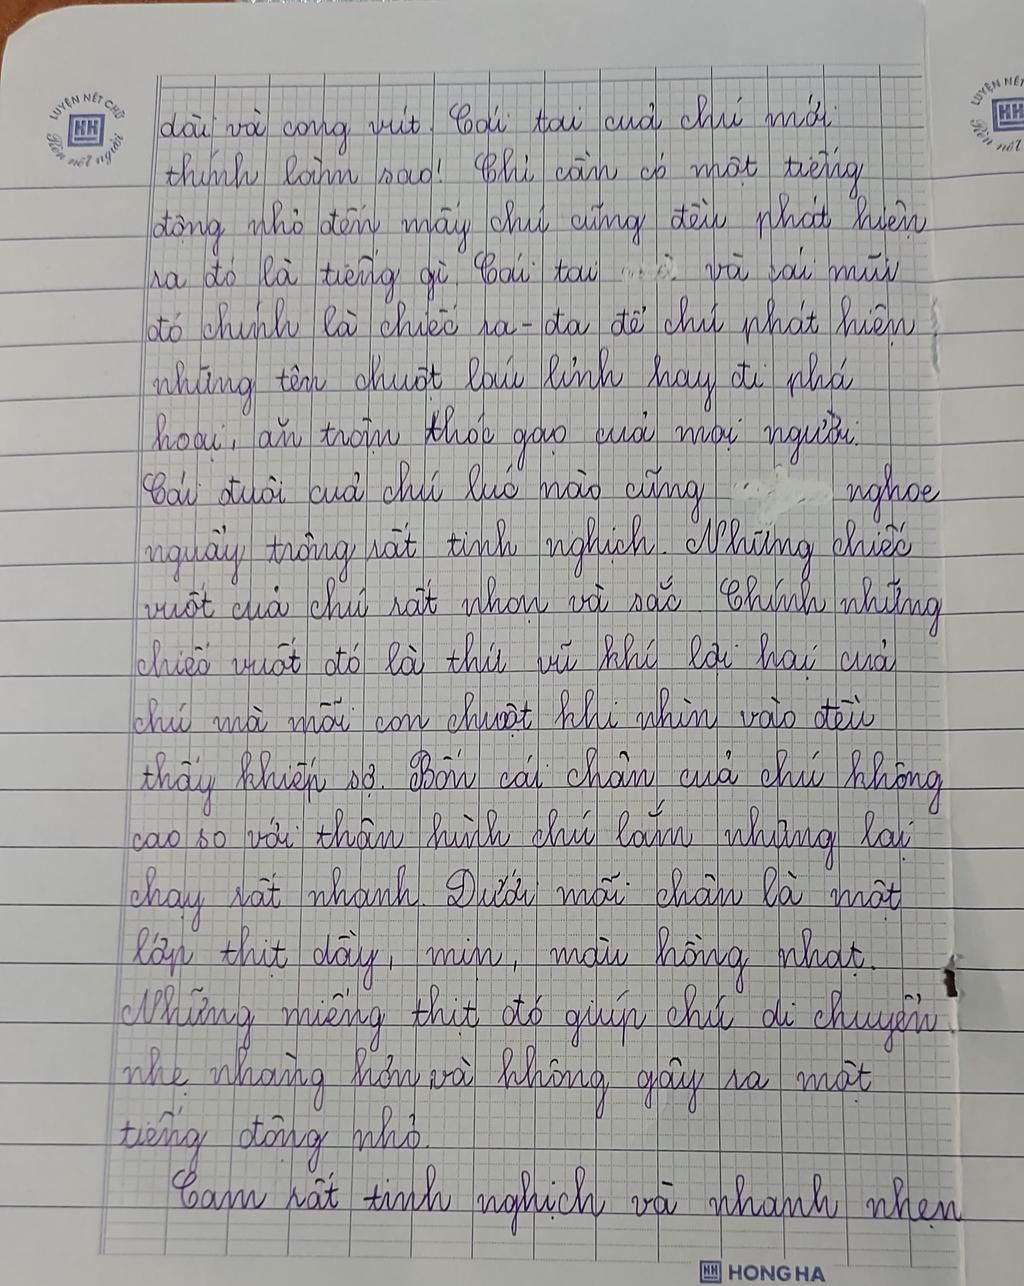 LUYỆN NÉT CHỮ
HH
Rèn nết người
LUYỆN NÉT
HH
Rèn nết
dài và cong vút. Cái tai của chú mới
thính làm sao! Chỉ cần có một tiếng
động nhỏ đến mấy chú cũng đều phát hiện
ra đó là tiếng gì. Cái tai và cái mũi
đó chính là chiếc ra-đa để chú phát hiện
những tên chuột láu lỉnh hay đi phá
hoại, ăn trộm thóc gạo của mọi người.
Cái đuôi của chú lúc nào cũng nghoe
nguẩy trông rất tinh nghịch. Những chiếc
vuốt của chú rất nhọn và sắc. Chính những
chiếc vuốt đó là thứ vũ khí lợi hại của
chú mà mỗi con chuột khi nhìn vào đều
thấy khiếp sợ. Bốn cái chân của chú không
cao so với thân hình chú lắm nhưng lại
chạy rất nhanh. Dưới mỗi chân là một
lớp thịt dày, mịn, màu hồng nhạt.
Những miếng thịt đó giúp chú di chuyển
nhẹ nhàng hơn và không gây ra một
tiếng động nhỏ.
Cam rất tinh nghịch và nhanh nhẹn
HH HONG HA